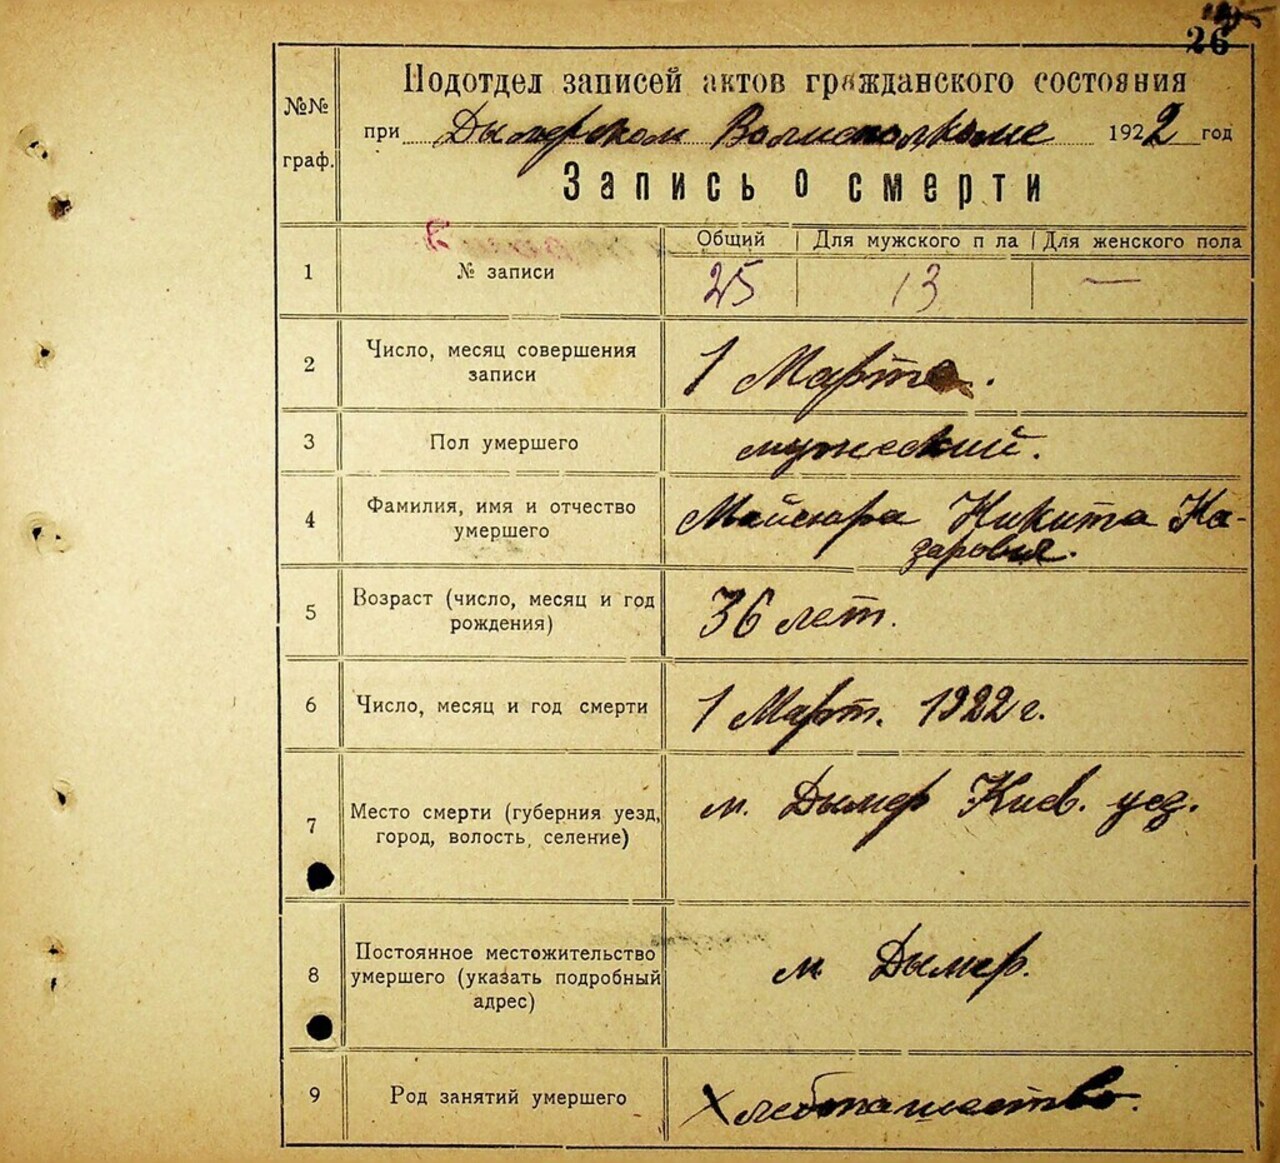 26
№№ граф.
Подотдел записей актов гражданского состояния
при Дымерском Волисполкоме 1922 год
Запись о смерти
Общий | Для мужского п ла | Для женского пола
1 № записи 25 13 —
2 Число, месяц совершения
записи
1 Марта.
3 Пол умершего мужеский.
4 Фамилия, имя и отчество
умершего
Майсюра Никита На-
заровия.
5 Возраст (число, месяц и год
рождения)
36 лет.
6 Число, месяц и год смерти 1 Март. 1922 г.
7 Место смерти (губерния уезд,
город, волость, селение)
м. Дымер Киев. уез.
8 Постоянное местожительство
умершего (указать подробный
адрес)
м Дымер.
9 Род занятий умершего Хлебопашество.